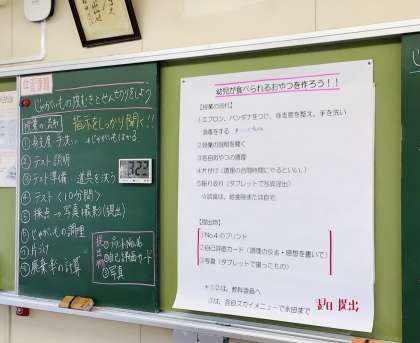 じゃがいもの皮むきとせんぎりをしよう
授業の流れ 指示をしっかり聞く!!
①身支度 手洗い
②テスト説明
③テスト準備 道具を洗う
④テスト〈10分間〉
⑤採点→写真撮影(提出)
⑥じゃがいもの調理
⑦片づけ
⑧廃棄率の計算
提出物
①プリントNo.16
②自己評価カード
③写真
幼児が食べられるおやつを作ろう!!
【授業の流れ】
①エプロン、バンダナをつけ、身支度を整え、手を洗い
消毒をする
②説明を聞く
③各自おやつの調理
④片付け(調理の合間時間にやるといい。)
⑤振り取り(タブレットで写真提出)
☆試食は、給食時または自宅
【提出物】
①No.4のプリント
②自己評価カード(調理の反省・感想を書いて)
③写真(タブレットで撮ったもの)
*①②は、教科委員へ
③は、各自スカイメニューで永田まで
翌日 提出